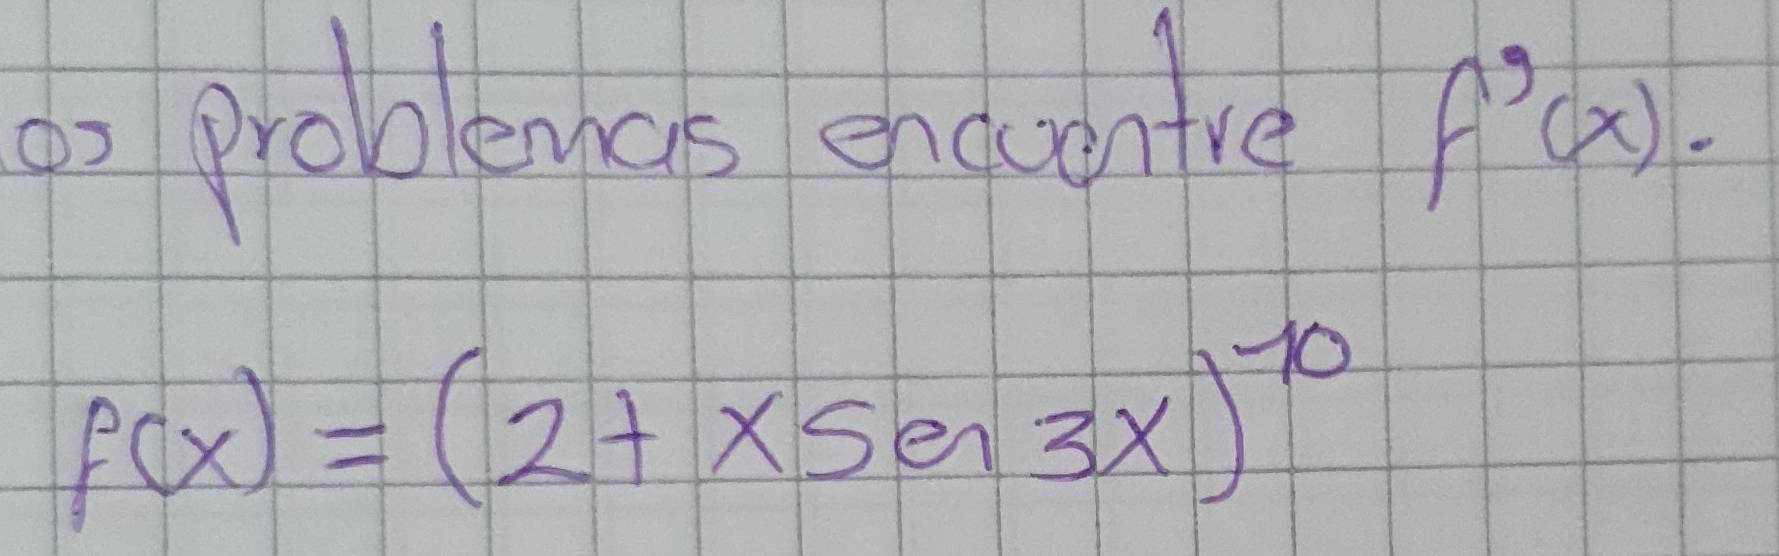 os problemas encuentre f'(x).
f(x) = (2 + x Sen 3x)^-10